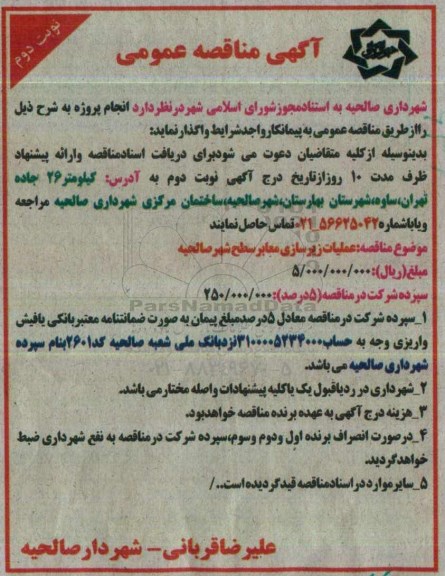 نوبت دوم
آگهی مناقصه عمومی
شهرداری صالحیه به استنادمجوزشورای اسلامی شهردرنظردارد انجام پروژه به شرح ذیل
راازطریق مناقصه عمومی به پیمانکارواجدشرایط واگذارنماید:
بدینوسیله ازکلیه متقاضیان دعوت می شودبرای دریافت اسنادمناقصه وارائه پیشنهاد
ظرف مدت ۱۰ روزازتاریخ درج آگهی نوبت دوم به آدرس: کیلومتر۲۶ جاده
تهران،ساوه،شهرستان بهارستان،شهرصالحیه،ساختمان مرکزی شهرداری صالحیه مراجعه
ویاباشماره ۵۶۶۲۵۰۴۲-۰۲۱ تماس حاصل نمایند
موضوع مناقصه:عملیات زیرسازی معابرسطح شهرصالحیه
مبلغ(ریال): ۵/۰۰۰/۰۰۰/۰۰۰
سپرده شرکت درمناقصه(۵درصد): ۲۵۰/۰۰۰/۰۰۰
ParsNamadData
۱_سپرده شرکت درمناقصه معادل ۵درصدمبلغ پیمان به صورت ضمانتنامه معتبربانکی یافیش
واریزی وجه به حساب۳۱۰۰۰۰۵۲۳۴۰۰۰نزدبانک ملی شعبه صالحیه کد۲۶۰۱بنام سپرده
شهرداری صالحیه می باشد.
۲_شهرداری در ردیاقبول یک یاکلیه پیشنهادات واصله مختارمی باشد.
۳_هزینه درج آگهی به عهده برنده مناقصه خواهدبود.
۴_درصورت انصراف برنده اول ودوم وسوم،سپرده شرکت درمناقصه به نفع شهرداری ضبط
خواهدگردید.
۵_سایرموارد دراسنادمناقصه قیدگردیده است../
علیرضاقربانی- شهردارصالحیه